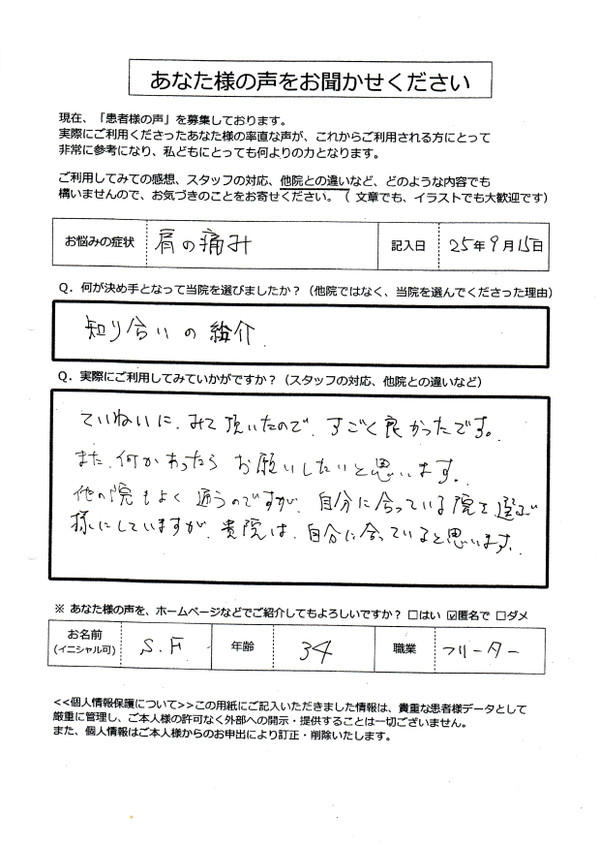 あなた様の声をお聞かせください
現在、「患者様の声」を募集しております。
実際にご利用くださったあなた様の率直な声が、これからご利用される方にとって
非常に参考になり、私どもにとっても何よりの力となります。
ご利用してみての感想、スタッフの対応、他院との違いなど、どのような内容でも
構いませんので、お気づきのことをお寄せください。（ 文章でも、イラストでも大歓迎です）
お悩みの症状 肩の痛み 記入日 25年9月15日
Q．何が決め手となって当院を選びましたか？（他院ではなく、当院を選んでくださった理由）
知り合いの紹介.
Q．実際にご利用してみていかがですか？（スタッフの対応、他院との違いなど）
ていねいに、みて頂いたので、すごく良かったです。
また、何かあったら お願いしたいと思います。
他の院もよく 通うのですが、自分に合っている院を選ぶ
様にしていますが、貴院は、自分に合っていると思います。
※ あなた様の声を、ホームページなどでご紹介してもよろしいですか？ □はい ☑匿名で □ダメ
お名前 (イニシャル可) S.F 年齢 34 職業 フリーター
<<個人情報保護について>>この用紙にご記入いただきました情報は、貴重な患者様データとして
厳重に管理し、ご本人様の許可なく外部への開示・提供することは一切ございません。
また、個人情報はご本人様からのお申出により訂正・削除いたします。